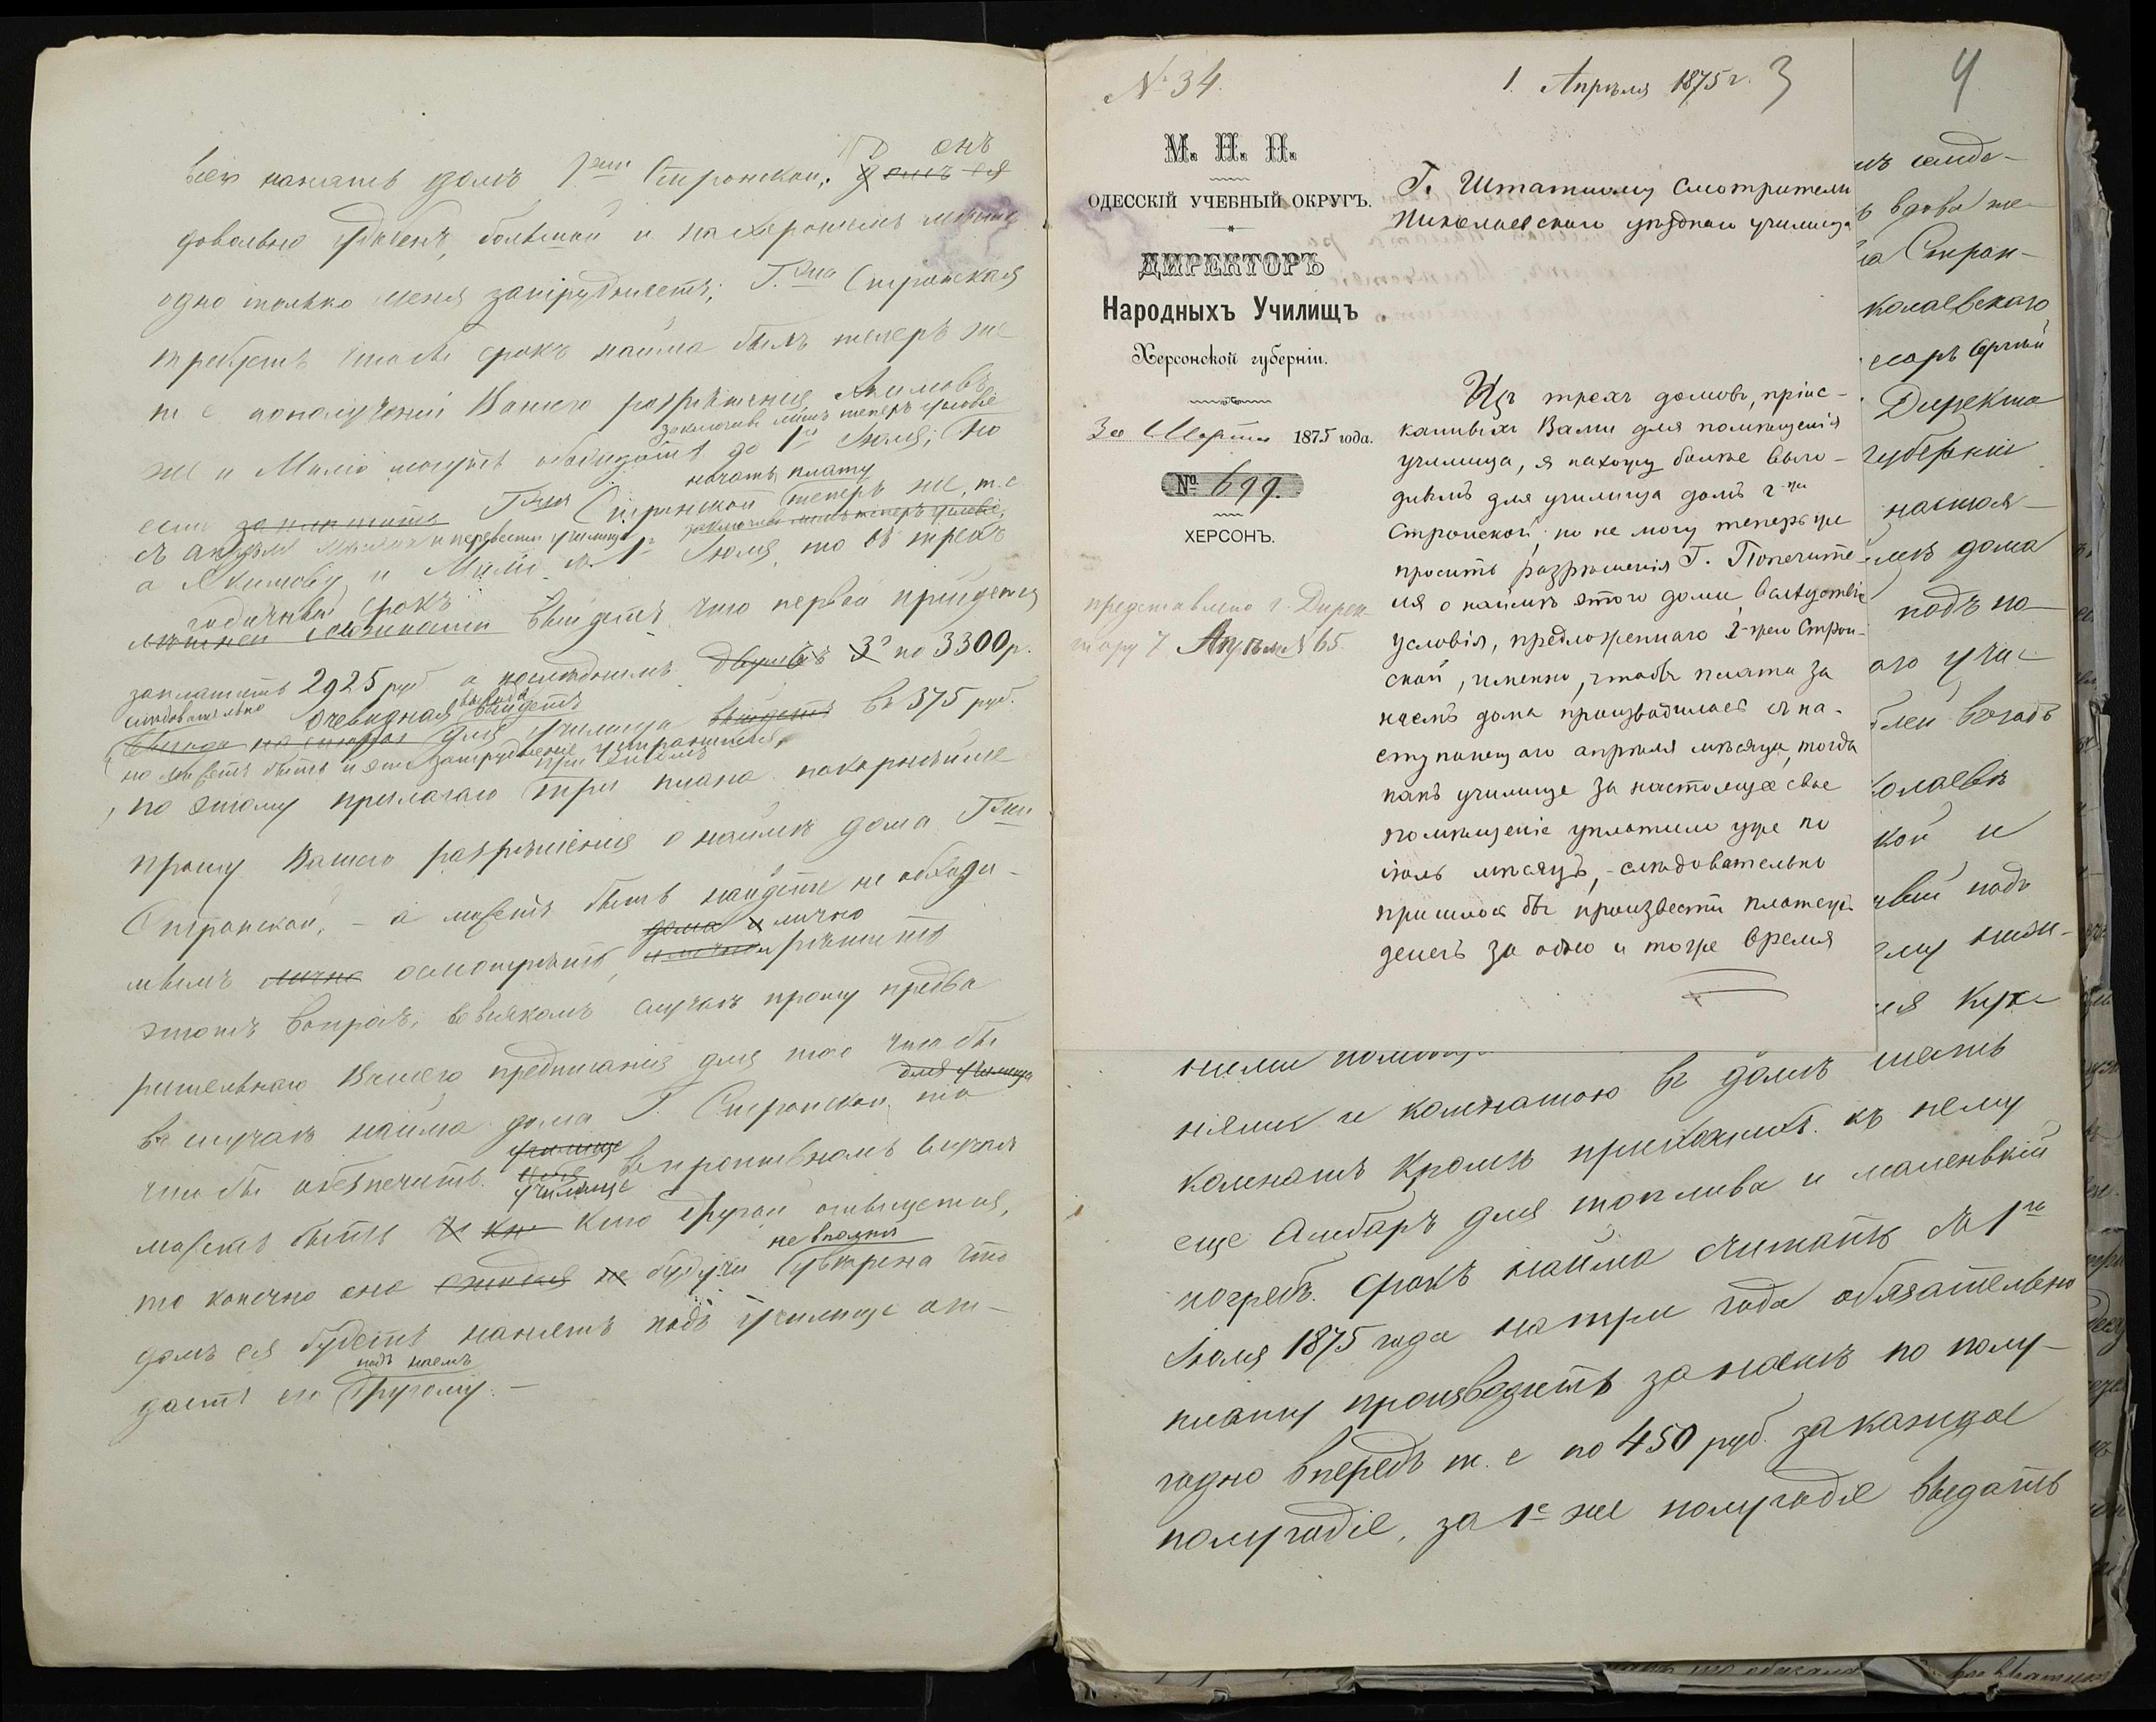 всего нанять домъ Г-жи Стронской; домъ ея онъ
довольно удобенъ, большой и на хорошемъ мѣстѣ
одно только меня затрудняетъ; Г-жа Стронская
требуетъ чтобы срокъ найма былъ теперь же
т е по полученіи Вашего разрѣшенія
заключивъ теперь условіе
же и Мило могутъ обождать до 1го Іюля; но
начать плату
если заплатить Г-жи Стронской теперь же, т. е.
съ апрѣля и перевести училище заключивъ теперь условіе,
а Якимову и Мило съ 1го Іюля, то въ трех
годичный срокъ
выйдетъ что первой придется
заплатить 2925 руб а послѣднимъ двумъ 3 по 3300 р.
слѣдовательно очевидная выгода выйдетъ
выгода для училища въ 375 руб.
но можетъ быть и это затрудненіе устранится,
по этому прилагаю при этомъ три плана покорнѣйше
прошу Вашего разрѣшенія о наймѣ дома Г-жи
Стронской, – а можетъ быть найдете не обходи-
мымъ лично осмотрѣть дома и лично рѣшить
этотъ вопросъ, во всякомъ случаѣ прошу предва
рительнаго Вашего предписанія для того что бы
для училища
въ случаѣ найма дома Г. Стронской, то
что бы обезпечить училище въ противномъ случаѣ
можетъ быть кто другой отыщется,
не вполнѣ
то конечно она не будучи увѣрена что
домъ ея будетъ нанятъ подъ училище от-
подъ наемъ
дастъ его другому. –
№ 34.
1. Апрѣля 1875 г. 3
4
М. Н. П.
ОДЕССКІЙ УЧЕБНЫЙ ОКРУГЪ.
ДИРЕКТОРЪ
Народныхъ Училищъ
Херсонской губерніи.
30 Марта 1875 года.
№ 699.
ХЕРСОНЪ.
представлено г. Дирек
тору 7 Апрѣля № 65.
Г. Штатному Смотрителю
Николаевскаго уѣзднаго училища
Изъ трехъ домовъ, пріис-
канныхъ Вами для помѣщенія
училища, я нахожу болѣе выго-
днымъ для училища домъ г-жи
Стронской; но не могу теперь же
просить разрѣшенія Г. Попечите-
ля о наймѣ этого дома, вслѣдствіе
условія, предложеннаго г-жею Строн-
ской, именно, чтобы плата за
наемъ дома производилась съ на-
ступающаго апрѣля мѣсяца, тогда
какъ училище за настоящее свое
помѣщеніе уплатило уже по
іюль мѣсяцъ, - слѣдовательно
пришлось бы произвести платежъ
денегъ за одно и тоже время
вдова
Строн-
колаевскаго
Сергѣй
Директо
губерніи
настоя-
дома
подъ по-
кой и
подъ
ніями и комнатою въ домѣ шесть
комнатъ кромѣ прихожихъ. къ нему
еще Амбаръ для топлива и маленькій
погребъ. Срокъ найма считать съ 1го
Іюля 1875 года на три года обязательно
плату производить за наемъ по полу-
годно впередъ т. е по 450 руб. за каждое
полугодіе, за 1е же полугодіе выдать